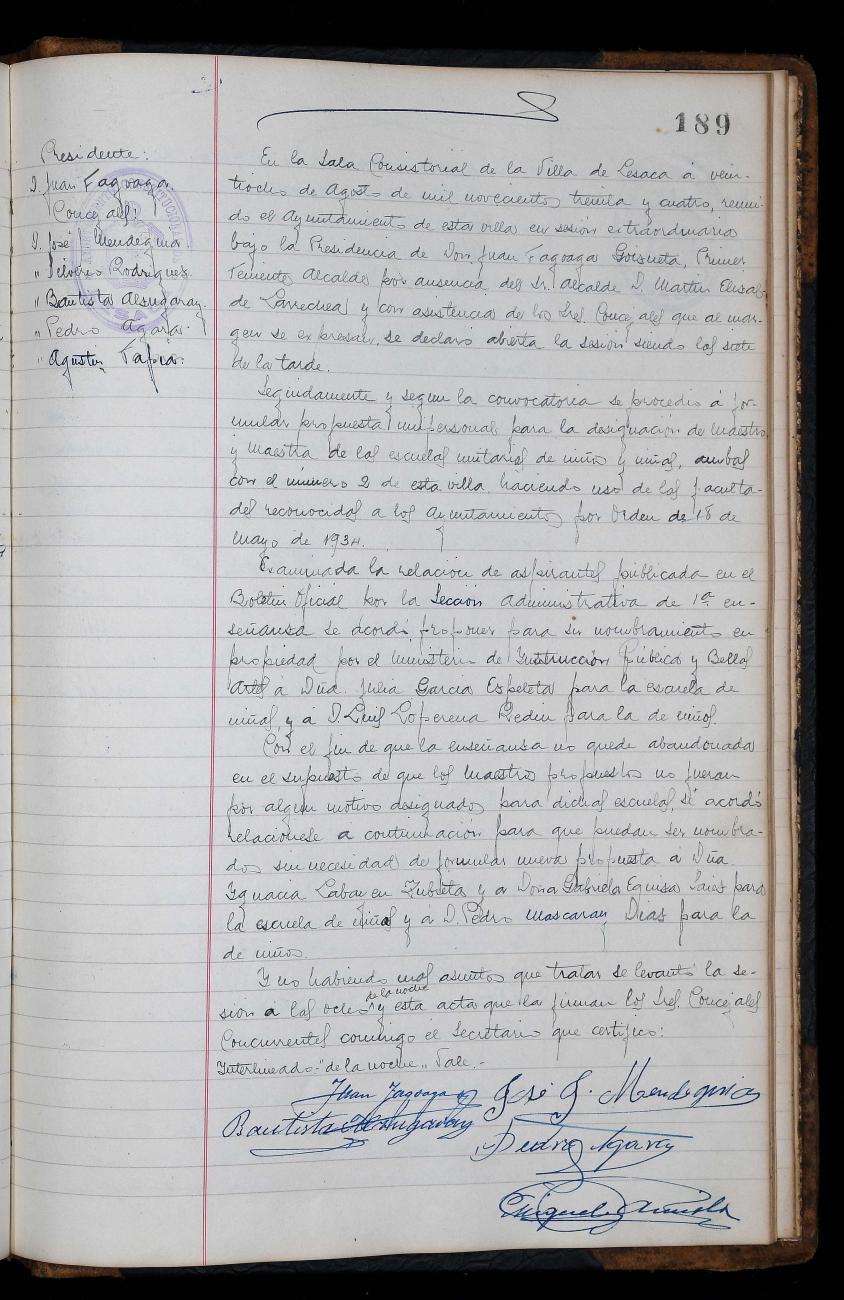 189
Presidente:
D. Juan Fagoaga.
Concejales:
D. José J. Mendeguia
" Silverio Rodriguez.
" Bautista Alsugaray.
" Pedro Agara.
" Agustin Tapia.
En la Sala Consistorial de la Villa de Lesaca á vein-
tiocho de Agosto de mil novecientos treinta y cuatro, reuni-
do el Ayuntamiento de esta villa en sesión extraordinaria
bajo la Presidencia de Don Juan Fagoaga Goisueta, Primer
Teniente Alcalde por ausencia del Sr. Alcalde D. Martin Elisal-
de Larrechea y con asistencia de los Sres. Concejales que al mar-
gen se expresan, se declaró abierta la sesión siendo las siete
de la tarde.
Seguidamente y segun la convocatoria se procedió á for-
mular propuesta unipersonal para la designación de Maestro
y Maestra de las escuelas unitarias de niños y niñas, ambas
con el número 2 de esta villa, haciendo uso de las faculta-
des reconocidas a los Ayuntamientos por Orden de 18 de
Mayo de 1934.
Examinada la relación de aspirantes publicada en el
Boletin Oficial por la Sección Administrativa de 1ª en-
señansa se acordó proponer para su nombramiento en
propiedad por el Ministerio de Instrucción Pública y Bellas
Artes á Dña. Julia Garcia Espeleta para la escuela de
niñas, y á D. Luis Loperena Redin para la de niños.
Con el fin de que la enseñansa no quede abandonada
en el supuesto de que los Maestros propuestos no fueran
por algun motivo designados para dichas escuelas, se acordó
relacionese a continuación para que puedan ser nombra-
dos sin necesidad de formular nueva propuesta á Dña.
Ignacia Labayen Zubieta y a Doña Gabriela Eguisa Saies para
la escuela de niñas y á D. Pedro Mascaray Dias para la
de niños.
Y no habiendo mas asuntos que tratar se levantó la se-
sión a las ocho de la noche y esta acta que la firman los Sres. Concejales
Concurrentes conmigo el Secretario que certifico:
Interlineado.- "de la noche" Vale.-
Juan Fagoaga José J. Mendeguia
Bautista Alsugaray Pedro Agara